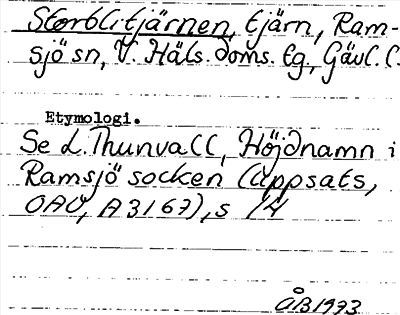 Storblitjärnen, tjärn, Ram-
sjö sn, V. Häls. doms. tg, Gävl. l.
Etymologi.
Se L. Thunvall, Höjdnamn i
Ramsjö socken (uppsats,
OAU, A 3167), s 14
ÅB 1973